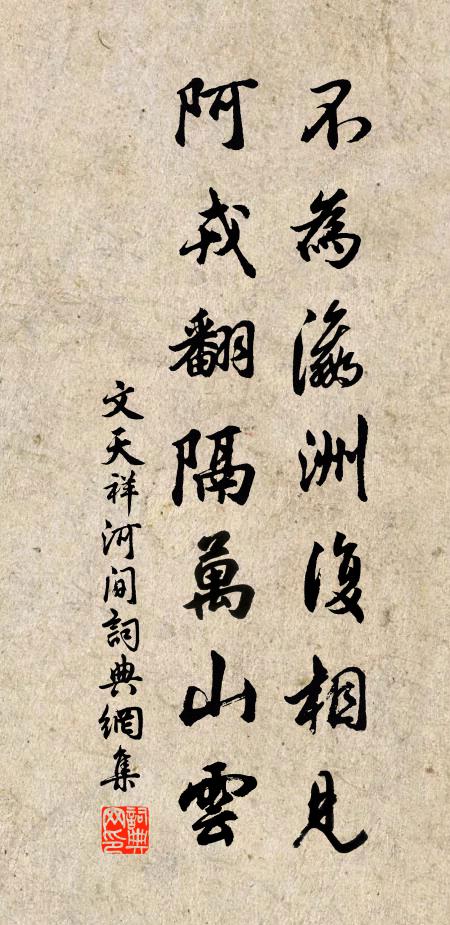 不為瀛洲復相見
阿戎翻隔萬山雲
文天祥河間詞典網集
詞典網印